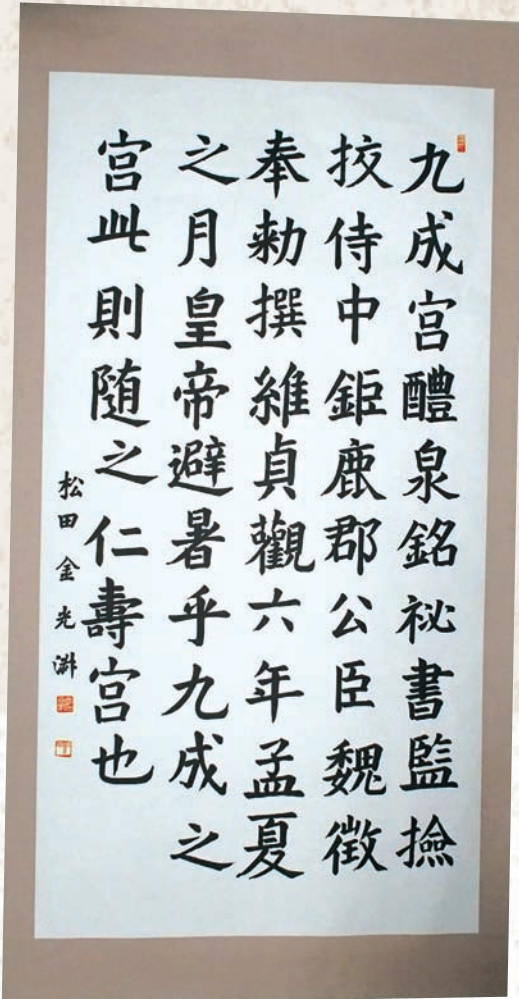 九成宮醴泉銘祕書監撿
挍侍中鉅鹿郡公臣魏徵
奉勑撰維貞觀六年孟夏
之月皇帝避暑乎九成之
宮此則随之仁壽宮也
松田金光